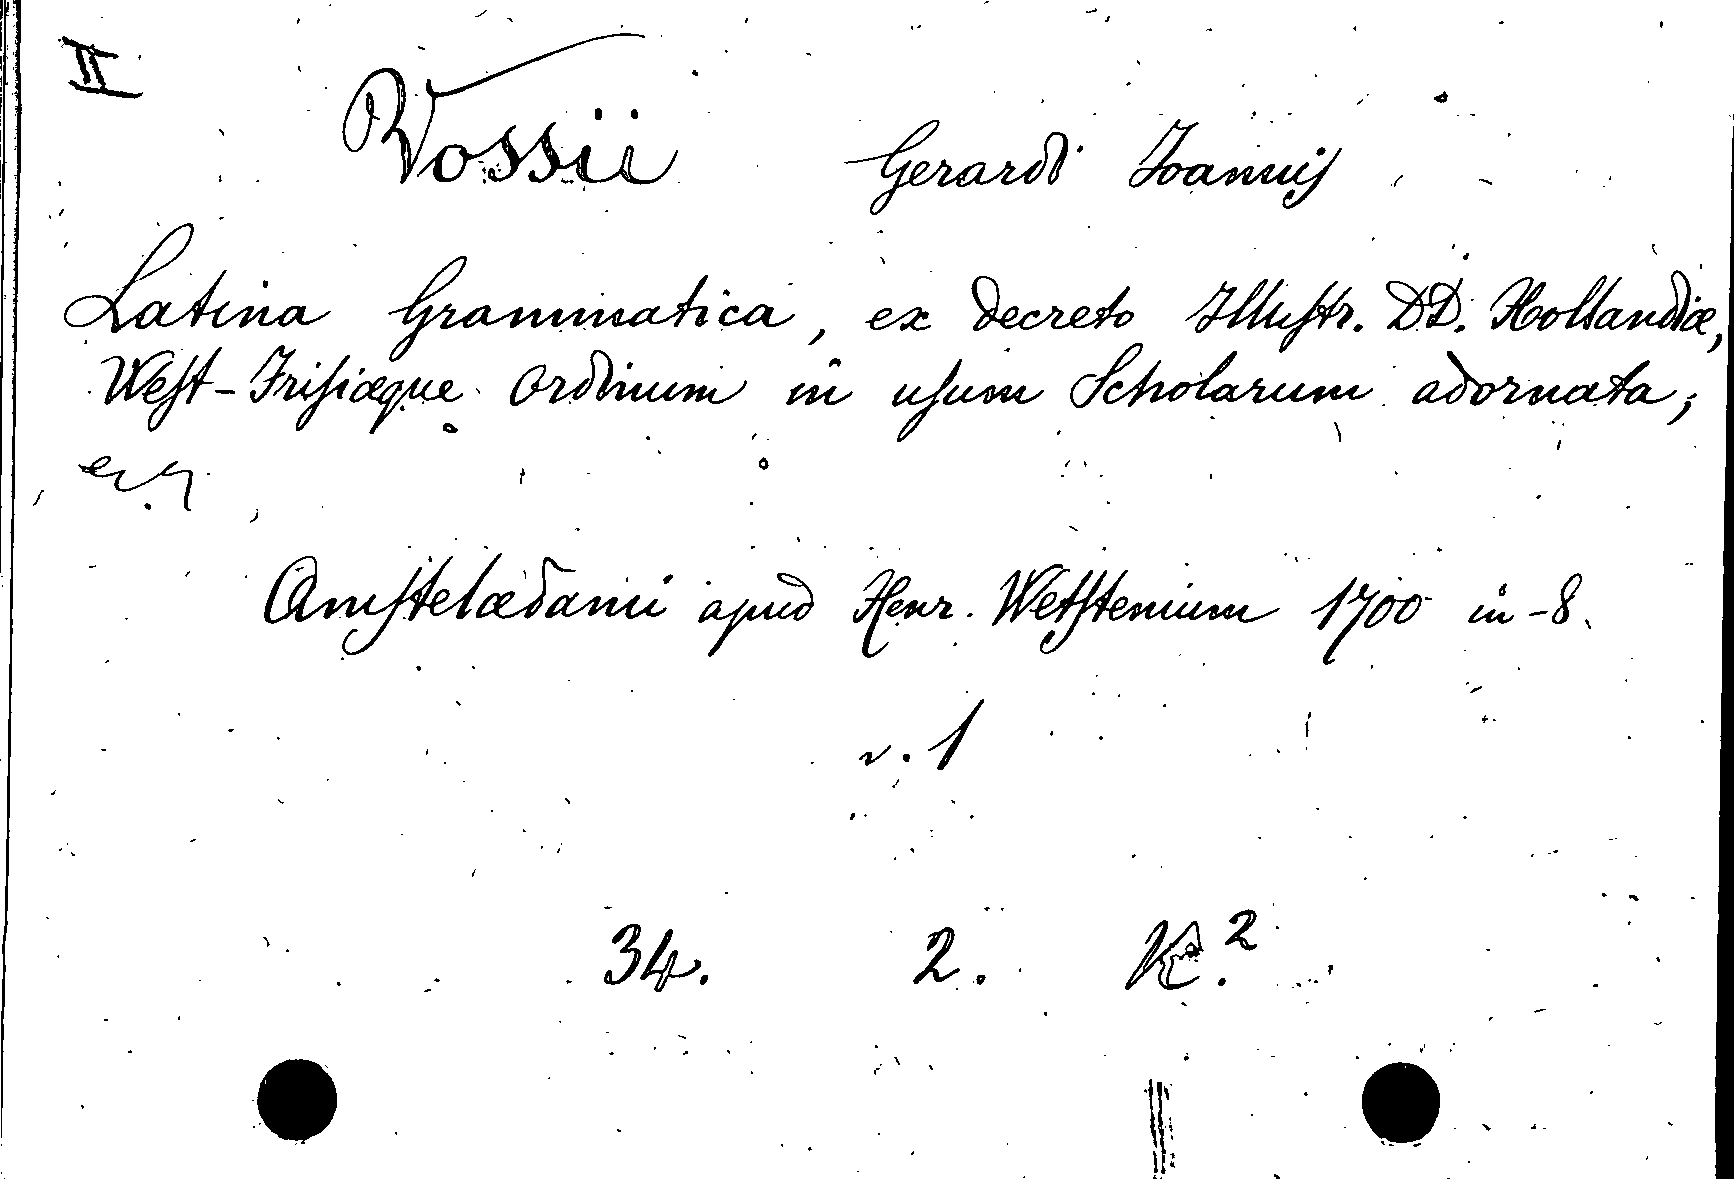 II
Vossii Gerardi Joannis
Latina Grammatica, ex decreto Illustr. DD. Hollandiæ,
West-Frisiæque Ordinum in usum Scholarum adornata;
Amstelædami apud Henr. Wetstenium 1700 in-8.
v. 1
34. 2. K.²